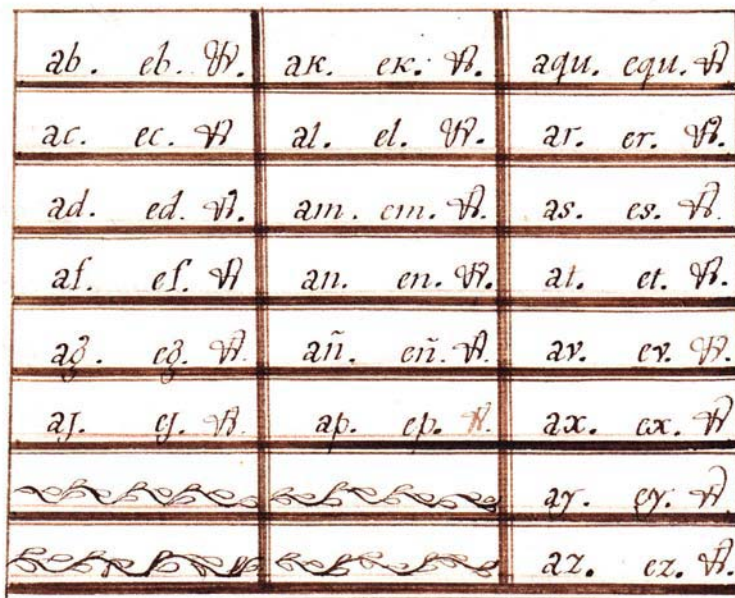 ab. eb. &. ak. ek. &. aqu. equ. &
ac. ec. & al. el. &. ar. er. &.
ad. ed. &. am. em. &. as. es. &.
af. ef. & an. en. &. at. et. &.
ag. eg. &. añ. eñ. &. av. ev. &.
aj. ej. &. ap. ep. &. ax. ex. &
ay. ey. &
az. ez. &.